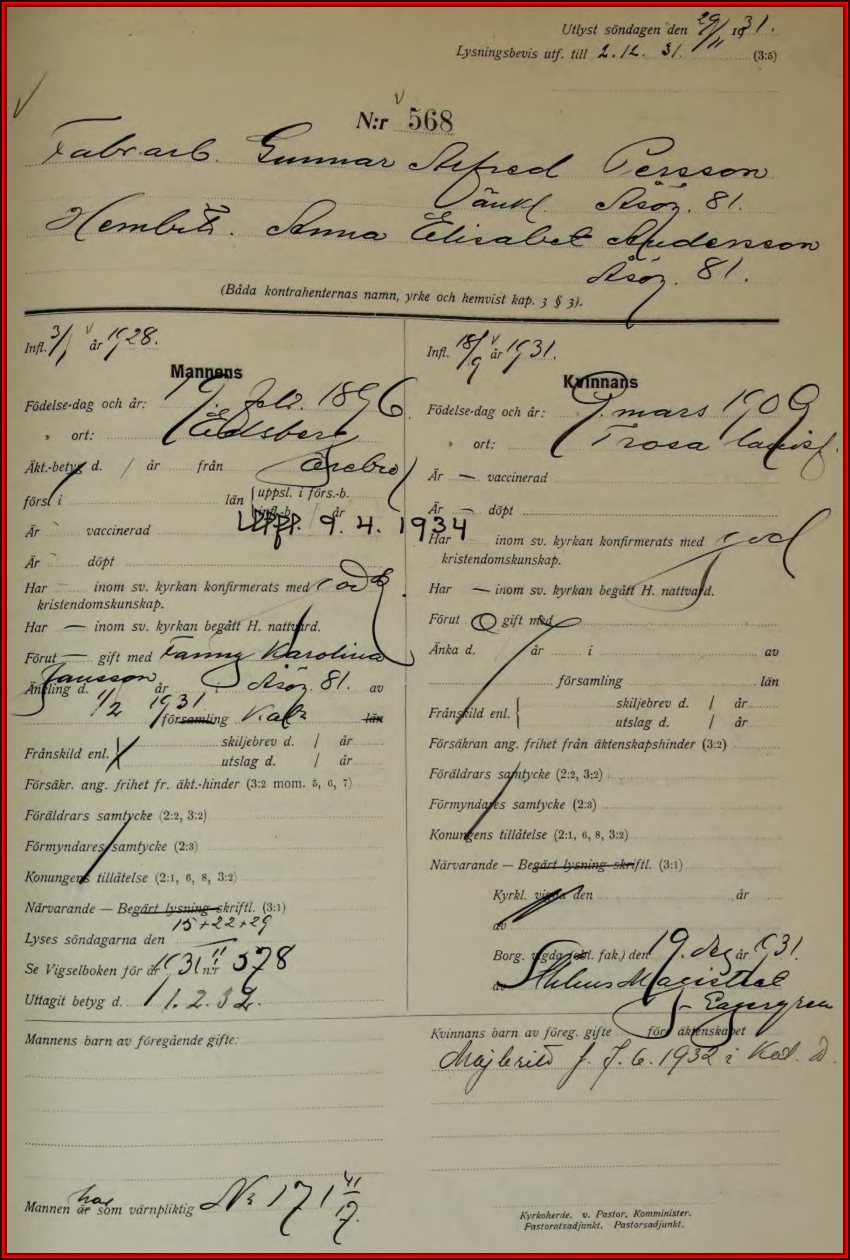 Utlyst söndagen den 29/11 1931.
Lysningsbevis utf. till 2.12. 31. (3:5)
N:r 568
Fabr.arb. Gunnar Alfred Persson
Åsög. 81.
Hembitr. Anna Elisabet Andersson
Åsög. 81.
(Båda kontrahenternas namn, yrke och hemvist kap. 3 § 3).
Infl. 3/1 år 1928.
Mannens
Födelse-dag och år: 19. febr. 1896.
„ ort: Edsberg
Äkt.-betyg d. / år från Örebro
förs. i län uppsl. i förs.-b.
infl.-b. / år
Är vaccinerad Uppf. 9. 4. 1934
Är döpt
Har inom sv. kyrkan konfirmerats med god
kristendomskunskap.
Har — inom sv. kyrkan begått H. nattvard.
Förut — gift med Fanny Karolina
Jansson
Änkling d. år Åsög. 81. av
1/2 1931. församling Kat. län
Frånskild enl. skiljebrev d. / år
utslag d. / år
Försäkr. ang. frihet fr. äkt.-hinder (3:2 mom. 5, 6, 7)
Föräldrars samtycke (2:2, 3:2)
Förmyndares samtycke (2:3)
Konungens tillåtelse (2:1, 6, 8, 3:2)
Närvarande — Begärt lysning skriftl. (3:1)
15 + 22 + 29
Lyses söndagarna den
11
Se Vigselboken för år 1931 n:r 578
Uttagit betyg d. 1. 2. 32.
Mannens barn av föregående gifte:
har
Mannen är som värnpliktig Nr 171 41/17.
Infl. 18/9 år 1931.
Kvinnans
Födelse-dag och år: 9. mars 1909
„ ort: Trosa landsf.
Är — vaccinerad
Är — döpt
Har inom sv. kyrkan konfirmerats med god
kristendomskunskap.
Har — inom sv. kyrkan begått H. nattvard.
Förut O gift med
Änka d. år i av
församling län
Frånskild enl. skiljebrev d. / år
utslag d. / år
Försäkran ang. frihet från äktenskapshinder (3:2)
Föräldrars samtycke (2:2, 3:2)
Förmyndares samtycke (2:3)
Konungens tillåtelse (2:1, 6, 8, 3:2)
Närvarande — Begärt lysning skriftl. (3:1)
Kyrkl. vigda den år
av
Borg. vigda (obl. fak.) den 19. dec år 1931.
av Sthlms Magistrat
Kvinnans barn av föreg. gifte före äktenskapet
Majbritt f. 7.6.1932 i Kat. D.
Kyrkoherde. v. Pastor. Komminister.
Pastoratsadjunkt. Pastorsadjunkt.